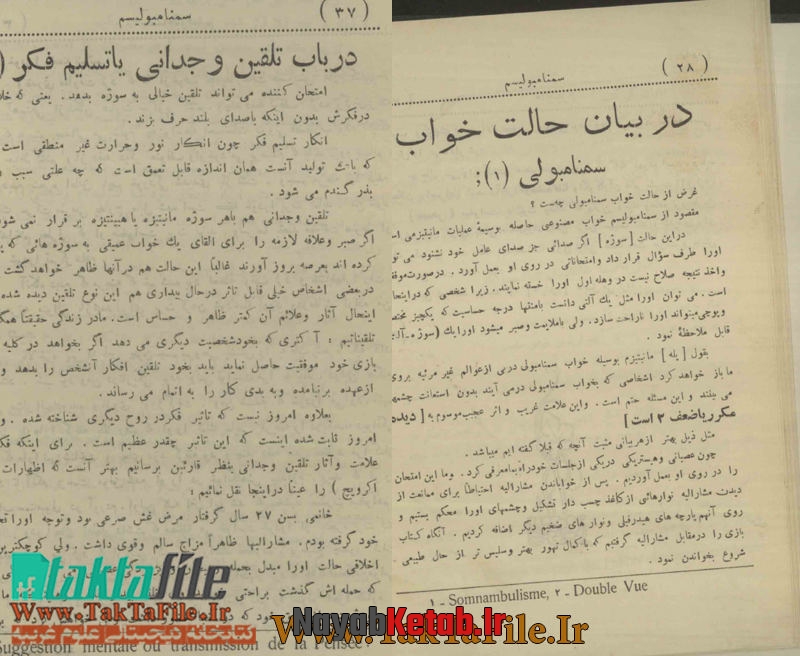 ( ۲۸ )
سمنامبولیسم
در بیان حالت خواب
سمنامبولی (۱) ;
غرض از حالت خواب سمنامبولی چیست ؟
مقصود از سمنامبولیسم خواب مصنوعی حاصله بوسیلهٔ عملیات مانیتیزمی است
دراین حالت [ سوژه ] اگر صدائی جز صدای عامل خود نشنود می تو
اورا طرف سؤال قرار داد وامتحاناتی در روی او بعمل آورد . درصورت
واخذ نتیجه صلاح نیست در وهله اول اورا خسته نمایند . زیرا شخصی که دراینحا
است . می توان اورا مثل یك آلتی دانست حساسیت که یکچیز
اورا ناراحت سازد . ولی باملایمت وصبر میشود اورا یك ( سوژه
قابل ملاحظهٔ نمود .
بقول [ یله ] مانیتیزم بوسیله خواب سمنامبولی دربی ازعوالم غیر مرئیه بروی
ما باز خواهد کرد اشخاصی که بخواب سمنامبولی درمی آیند بدون استعانت چشم
می بینند و این مسئله حتم است . واین علامت غریب و اثر عجیب موسوم به [ دیده
مکرر یاضعف ۲ است ]
مثل ذیل بهتر ازهربیانی مثبت آنچه که قبلا گفته ایم میباشد .
چون عصبانی وهیستریکی دریکی ازجلسات خودرا بما معرفی کرد . وما این امتحان
را در روی او بعمل آوردیم . پس از خواباندن مشارالیه احتیاطاً برای ممانعت از
دیدن مشارالیه نوارهائی ازکاغذ چسب دار تشکیل وچشمهای اورا محکم بستیم و
روی آنهم پارچه های هیدرفیلی ونوار های ضخیم دیگر اضافه کردیم . آنگاه کتاب
بازی را درمقابل مشارالیه گرفتیم که باکمال تهور بهتر وسلیس تر از حال طبیعی
شروع بخواندن نمود .
۱ - Somnambulisme, ۲ - Double Vue
( ۳۷ )
سمنامبولیسم
درباب تلقین وجدانی یاتسلیم فکر (
امتحان کننده می تواند تلقین خیالی به سوژه بدهد . یعنی که
درفکرش بدون اینکه باصدای بلند حرف بزند .
انکار تسلیم فکر چون انکار نور وحرارت غیر منطقی است
که باعث تولید آنست همان اندازه قابل تعمق است که چه علتی سبب
بذر گندم می شود .
تلقین وجدانی هم باهر سوژه مانیتیزه یا هیپنتیزه بر قرار نمی شود
اگر صبر وعلاقه لازمه را برای القای یك خواب عمیقی به سوژه هائی که
کرده اند بعرصه بروز آورند غالباً این حالت هم درآنها ظاهر خواهد گشت
دربعضی اشخاص خیلی قابل تاثر درحال بیداری هم این نوع تلقین دیده شده
اینحال آثار وعلائم آن کمتر ظاهر و حساس است . مادر زندگی حقیقتاً
تلقیناتیم : آ کتری که بخودشخصیت دیگری می دهد اگر بخواهد در کلیه
بازی خود موفقیت حاصل نماید باید بخود تلقین افکار آنشخص را بدهد و
ازعهده برنیامده وبه بدی کار را به اتمام می رساند .
بعلاوه امروز نیست که تاثیر فکردر روح دیگری شناخته شده . و
امروز ثابت شده اینست که این تاثیر چقدر عظیم است . برای اینکه
علامت وآثار تلقین وجدانی بنظر قارئین برسانیم بهتر آنست که اظهارات
اکرویچ ) را عیناً دراینجا نقل نمائیم :
خانمی بسن ۲۷ سال گرفتار مرض غش صرعی بود وتوجه اورا
خود گرفته بودم . مشارالیها ظاهراً مزاج سالم وقوی داشت . ولی
اخلاقی حالت اورا مبدل
که حمله اش گذشت براحتی
Suggestion mentale ou transmission de la Pensée .
taktafile
www.TakTaFile.Ir
NayabKetab.Ir
www.TakTaFile.Ir